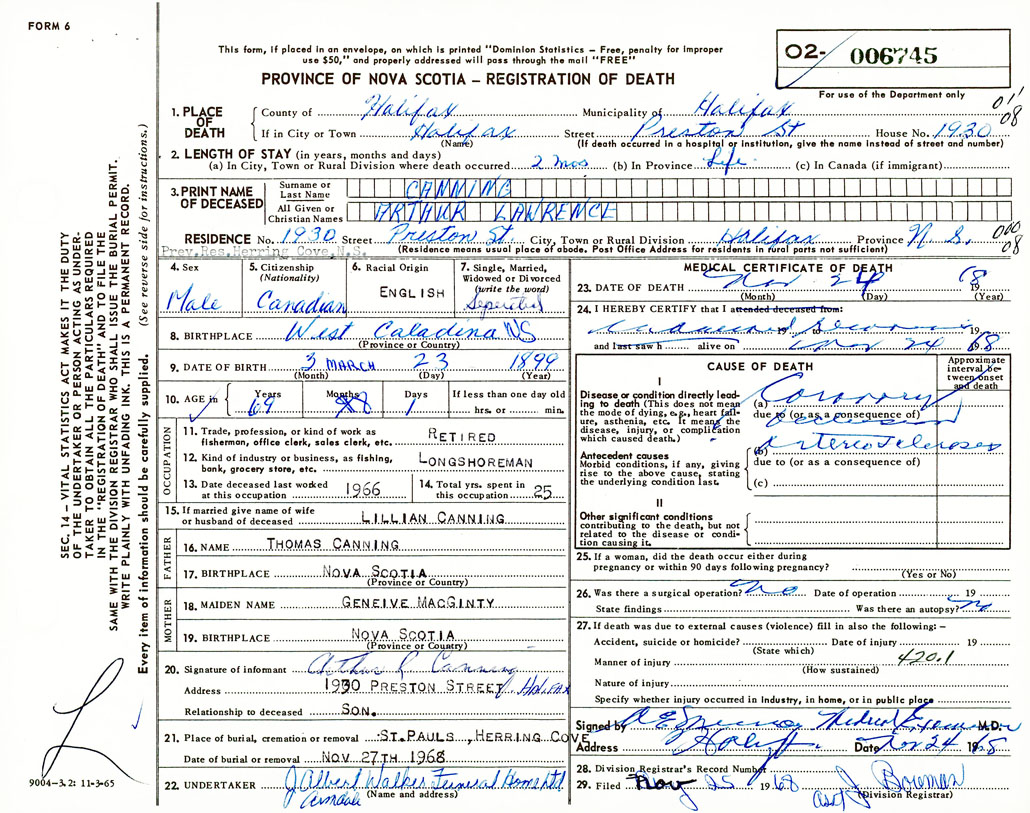 FORM 6
This form, if placed in an envelope, on which is printed "Dominion Statistics - Free, penalty for improper
use $50," and properly addressed will pass through the mail "FREE"
PROVINCE OF NOVA SCOTIA - REGISTRATION OF DEATH
O2- 006745
For use of the Department only
SEC. 14 - VITAL STATISTICS ACT MAKES IT THE DUTY
OF THE UNDERTAKER OR PERSON ACTING AS UNDER-
TAKER TO OBTAIN ALL THE PARTICULARS REQUIRED
IN THE "REGISTRATION OF DEATH" AND TO FILE THE
SAME WITH THE DIVISION REGISTRAR WHO SHALL ISSUE THE BURIAL PERMIT.
WRITE PLAINLY WITH UNFADING INK. THIS IS A PERMANENT RECORD.
Every item of information should be carefully supplied. (See reverse side for instructions.)
1. PLACE OF DEATH
County of Halifax Municipality of Halifax
If in City or Town Halifax Street Preston St House No. 1930
(Name) (If death occurred in a hospital or institution, give the name instead of street and number)
08
2. LENGTH OF STAY (in years, months and days)
(a) In City, Town or Rural Division where death occurred 2 mos (b) In Province Life (c) In Canada (if immigrant)
3. PRINT NAME OF DECEASED
Surname or Last Name CANNING
All Given or Christian Names ARTHUR LAWRENCE
RESIDENCE No. 1930 Street Preston St City, Town or Rural Division Halifax Province N.S.
Prev.Res.Herring Cove,N.S. (Residence means usual place of abode. Post Office Address for residents in rural parts not sufficient)
000
08
4. Sex Male
5. Citizenship (Nationality) Canadian
6. Racial Origin ENGLISH
7. Single, Married, Widowed or Divorced (write the word) Seperated
8. BIRTHPLACE West NS
(Province or Country)
9. DATE OF BIRTH 3 MARCH 23 1899
(Month) (Day) (Year)
10. AGE in Years 69 Months 8 Days 1 If less than one day old hrs. or min.
OCCUPATION
11. Trade, profession, or kind of work as fisherman, office clerk, sales clerk, etc. RETIRED
12. Kind of industry or business, as fishing, bank, grocery store, etc. LONGSHOREMAN
13. Date deceased last worked at this occupation 1966
14. Total yrs. spent in this occupation 25
15. If married give name of wife or husband of deceased LILLIAN CANNING
FATHER
16. NAME THOMAS CANNING
17. BIRTHPLACE NOVA SCOTIA
(Province or Country)
MOTHER
18. MAIDEN NAME GENEIVE MACGINTY
19. BIRTHPLACE NOVA SCOTIA
(Province or Country)
20. Signature of informant Arthur L Canning
Address 1930 PRESTON STREET, Halifax
Relationship to deceased SON.
21. Place of burial, cremation or removal ST.PAULS ,HERRING COVE
Date of burial or removal NOV 27TH 1968
22. UNDERTAKER J Albert Walker Funeral Home Ltd
Armdale (Name and address)
9004-3.2: 11-3-65
MEDICAL CERTIFICATE OF DEATH
23. DATE OF DEATH Nov 24 1968
(Month) (Day) (Year)
24. I HEREBY CERTIFY that I attended deceased from:
19 to 19
and last saw h alive on Nov 24 1968
CAUSE OF DEATH
Approximate interval between onset and death
I
Disease or condition directly leading to death (This does not mean the mode of dying, e.g., heart failure, asthenia, etc. It means the disease, injury, or complication which caused death.)
(a) Coronary
due to (or as a consequence of) Occlusion
Antecedent causes
Morbid conditions, if any, giving rise to the above cause, stating the underlying condition last.
(b) Arteriosclerosis
due to (or as a consequence of)
(c)
II
Other significant conditions
contributing to the death, but not related to the disease or condition causing it.
25. If a woman, did the death occur either during
pregnancy or within 90 days following pregnancy?
(Yes or No)
26. Was there a surgical operation? No Date of operation 19
State findings Was there an autopsy? No
27. If death was due to external causes (violence) fill in also the following: -
Accident, suicide or homicide? Date of injury 19
(State which)
Manner of injury 420.1
(How sustained)
Nature of injury
Specify whether injury occurred in Industry, in home, or in public place
Signed by Medical M.D.
Address Halifax Date Nov 24 1968
28. Division Registrar's Record Number
29. Filed Nov 25 1968 J Bowman
asst (Division Registrar)